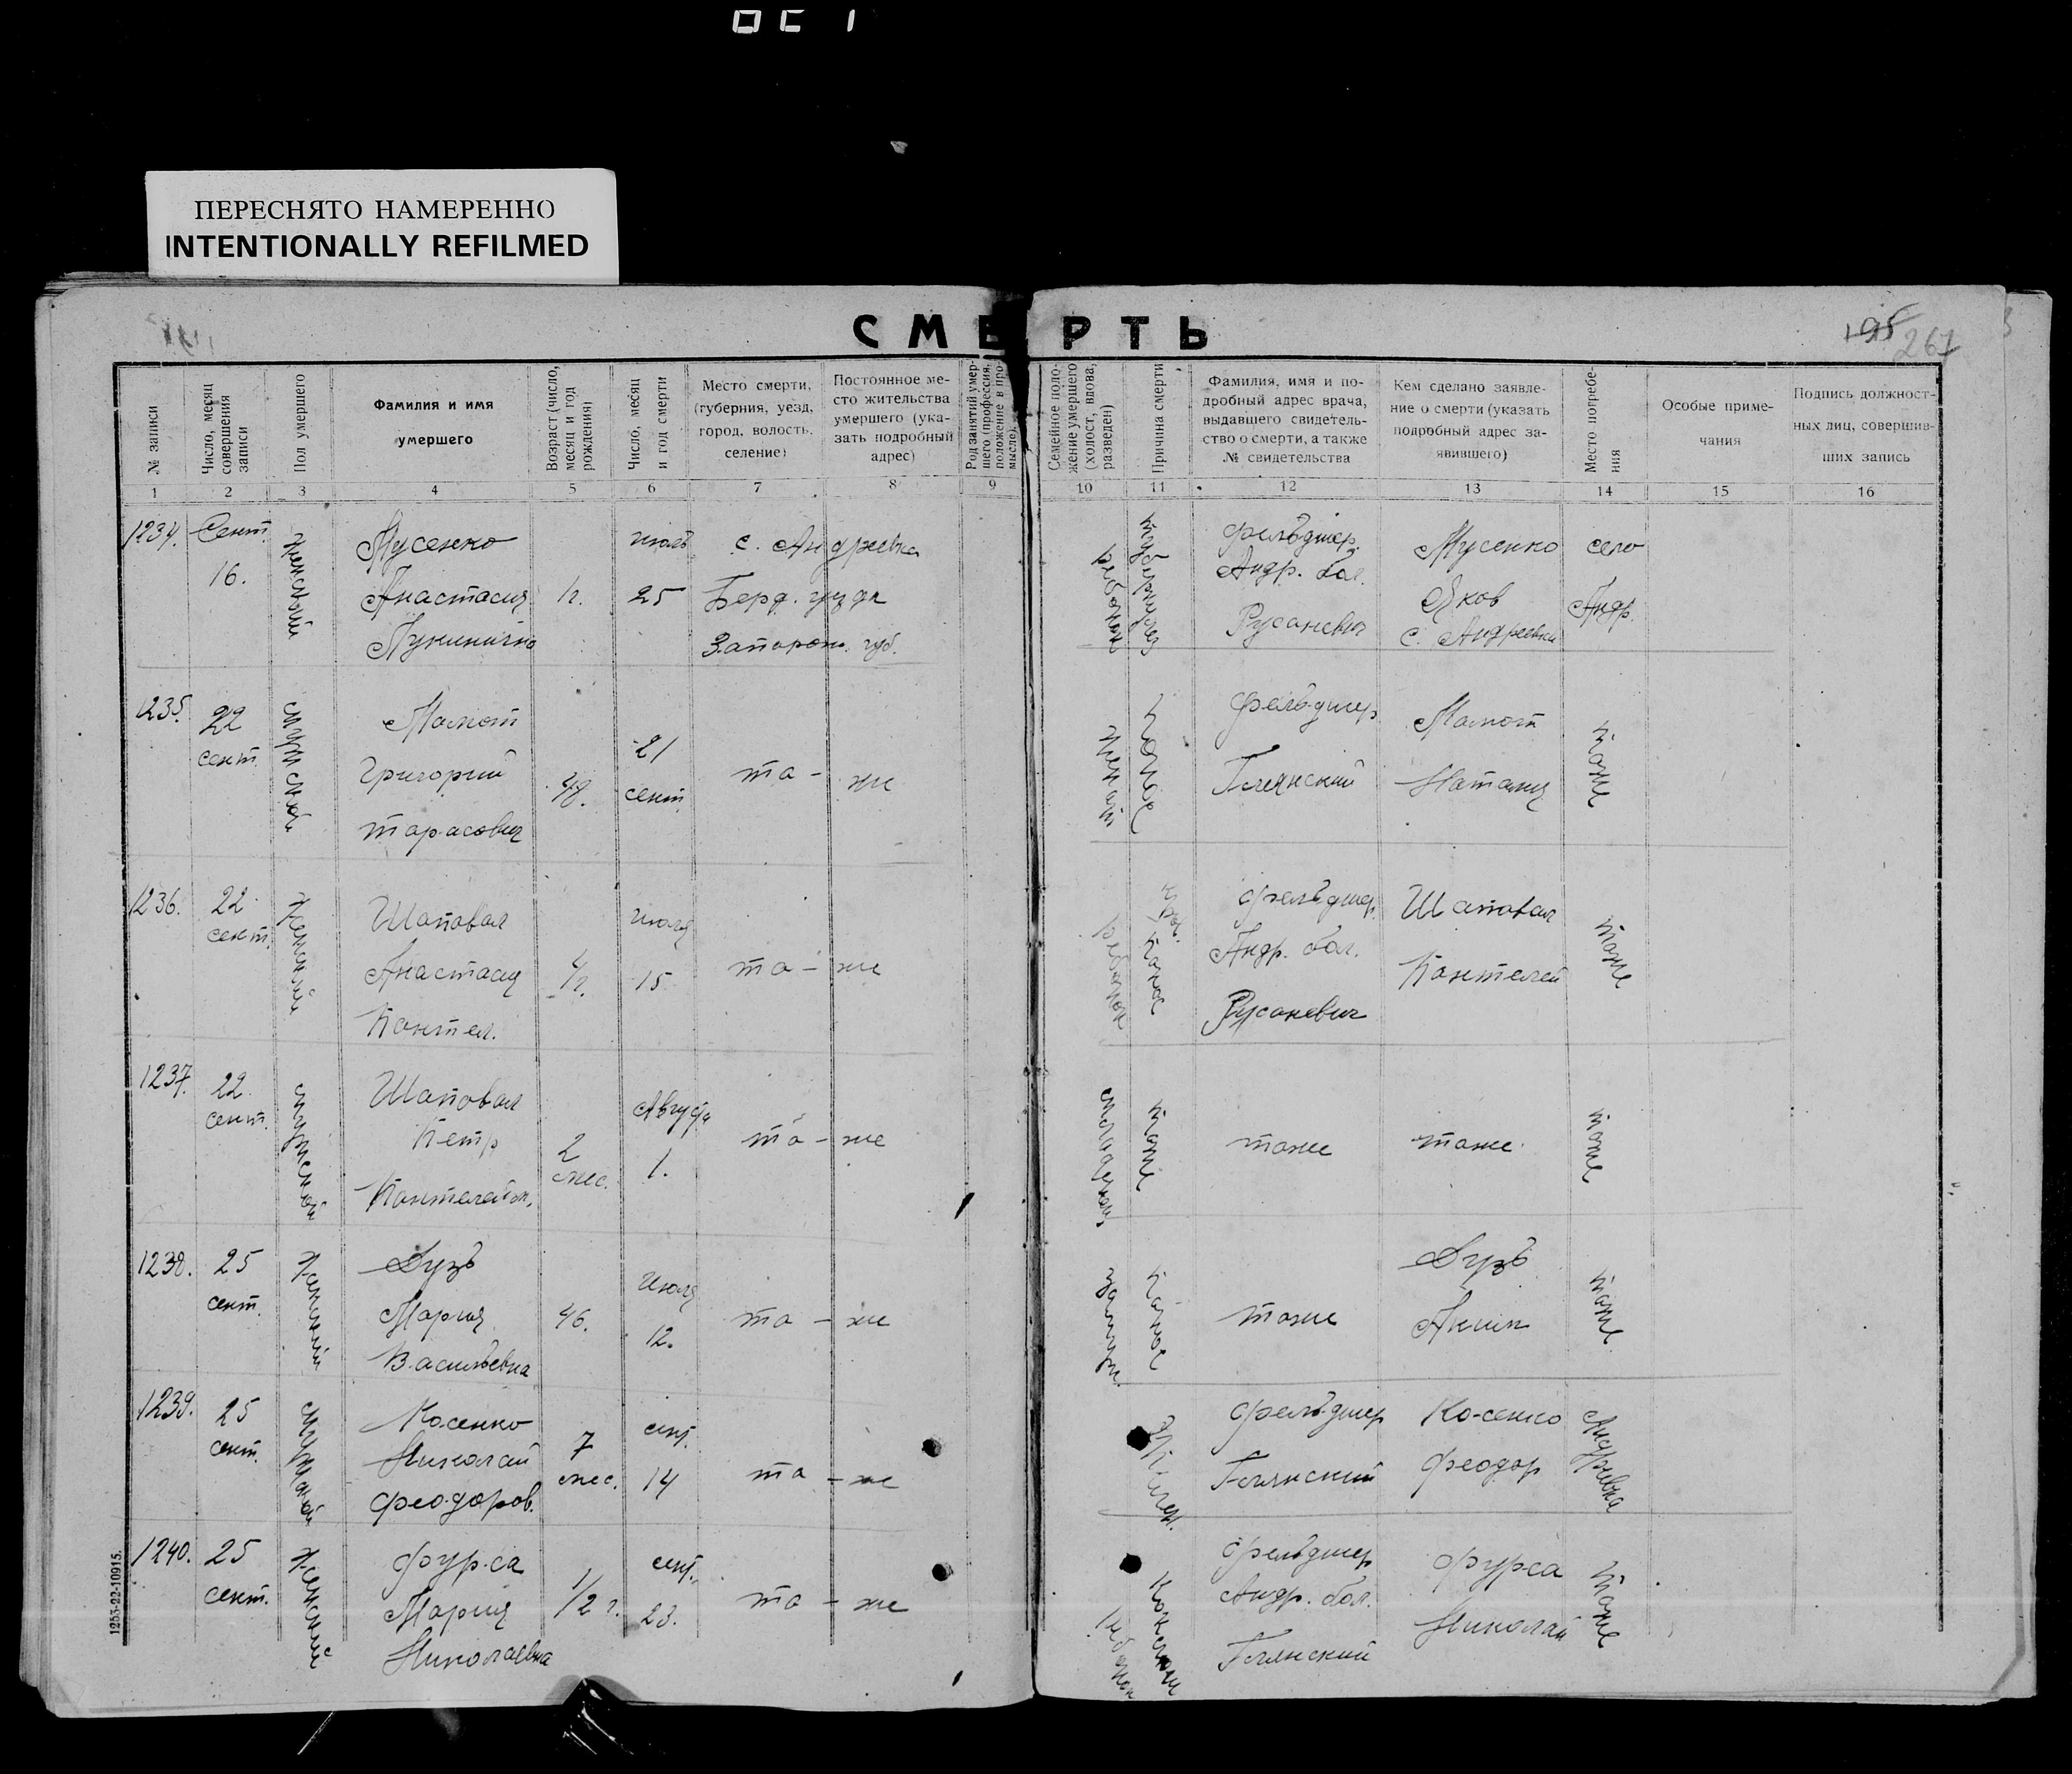 ПЕРЕСНЯТО НАМЕРЕННО
INTENTIONALLY REFILMED
СМЕРТЬ
195
267
№ записи
Число, месяц
совершения
записи
Пол умершего
Фамилия и имя
умершего
Возраст (число,
месяц и год
рождения)
Число, месяц
и год смерти
Место смерти,
(губерния, уезд,
город, волость,
селение)
Постоянное ме-
сто жительства
умершего (ука-
зать подробный
адрес)
Род занятий умер-
шего (профессия,
положение в про-
мысле)
Семейное поло-
жение умершего
(холост, вдова,
разведен)
Причина смерти
Фамилия, имя и по-
дробный адрес врача,
выдавшего свидетель-
ство о смерти, а также
№ свидетельства
Кем сделано заявле-
ние о смерти (указать
подробный адрес за-
явившего)
Место погребе-
ния
Особые приме-
чания
Подпись должност-
ных лиц, совершив-
ших запись
1 2 3 4 5 6 7 8 9 10 11 12 13 14 15 16
1234.
Сент.
16.
женский
Мусенко
Анастасия
Лукинична
1 г.
июль
25
с. Андреевка
Берд. уезда
Запорож. губ.
фельдшер
Андр. бол.
Русаневич
Мусенко
Яков
с. Андреевки
село
Андр.
1235.
22
сент.
мужской
Мамот
Григорий
Тарасович
48.
21
сент.
та - же
женат
фельдшер
Глянский
Мамот
Наталия
тоже
1236.
22
сент.
женский
Шаповал
Анастасия
Пантел.
4 г.
июля
15
та - же
фельдшер
Андр. бол.
Русаневич
Шаповал
Пантелей
тоже
1237.
22
сент.
мужской
Шаповал
Петр
Пантелейм.
2
мес.
Августа
1.
та - же
тоже
тоже
тоже
тоже
1238.
25
сент.
женский
Дузь
Мария
Васильевна
46.
июля
12.
та - же
тоже
Дузь
Аким
тоже
1239.
25
сент.
мужской
Косенко
Николай
Феодоров.
7
мес.
сент.
14
та - же
фельдшер
Глянский
Косенко
Феодор
Андреевка
1240.
25
сент.
женский
Фурса
Мария
Николаевна
1/2 г.
сент.
23.
та - же
фельдшер
Андр. бол.
Глянский
Фурса
Николай
тоже
1253-22-10915.